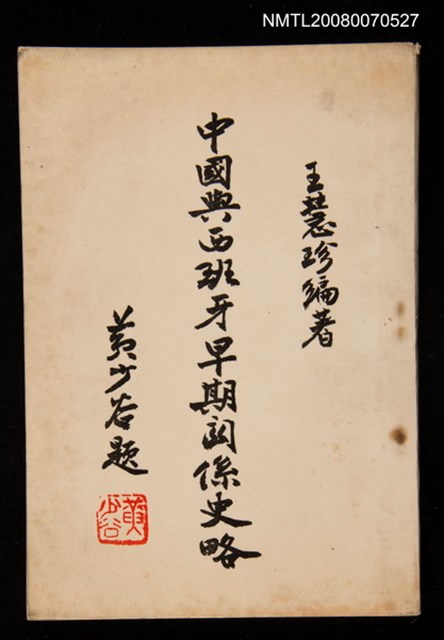 NMTL20080070527
王慧珍編著
中國與西班牙早期關係史略
黃少谷題
黃少谷